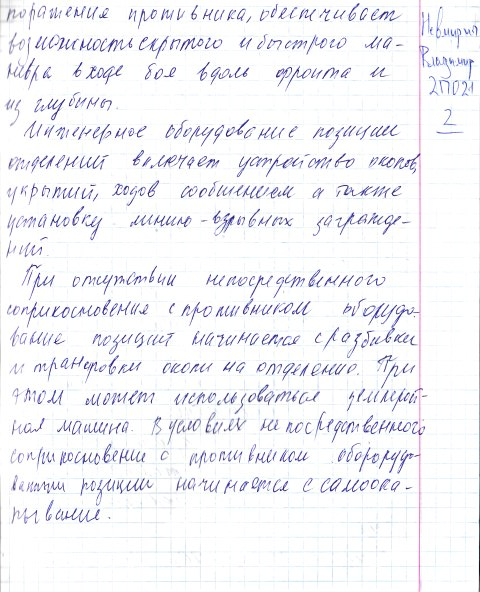 поражение противника, обеспечивает
возможность скрытого и быстрого ма-
невра в ходе боя вдоль фронта и
из глубины.
Инженерное оборудование позиции
отделений включает устройство окопов,
укрытий, ходов сообщением а также
установку минно-взрывных загражде-
ний.
При отсутствии непосредственного
соприкосновения с противником оборудо-
вание позиций начинается с разбивки
и трансровки окопи на отделение. При
этом может использоваться землерой-
ная машина. В условиях непосредственного
соприкосновение с противником оборорудо-
вании позиции начинается с самоока-
рывание.
Владимир
2П021
2